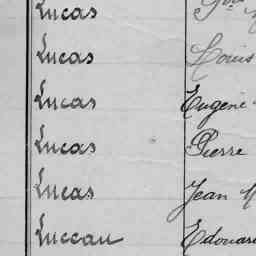 Lucas
Lucas Louis
Lucas Eugène
Lucas Pierre
Lucas Jean
Luccau Edouard